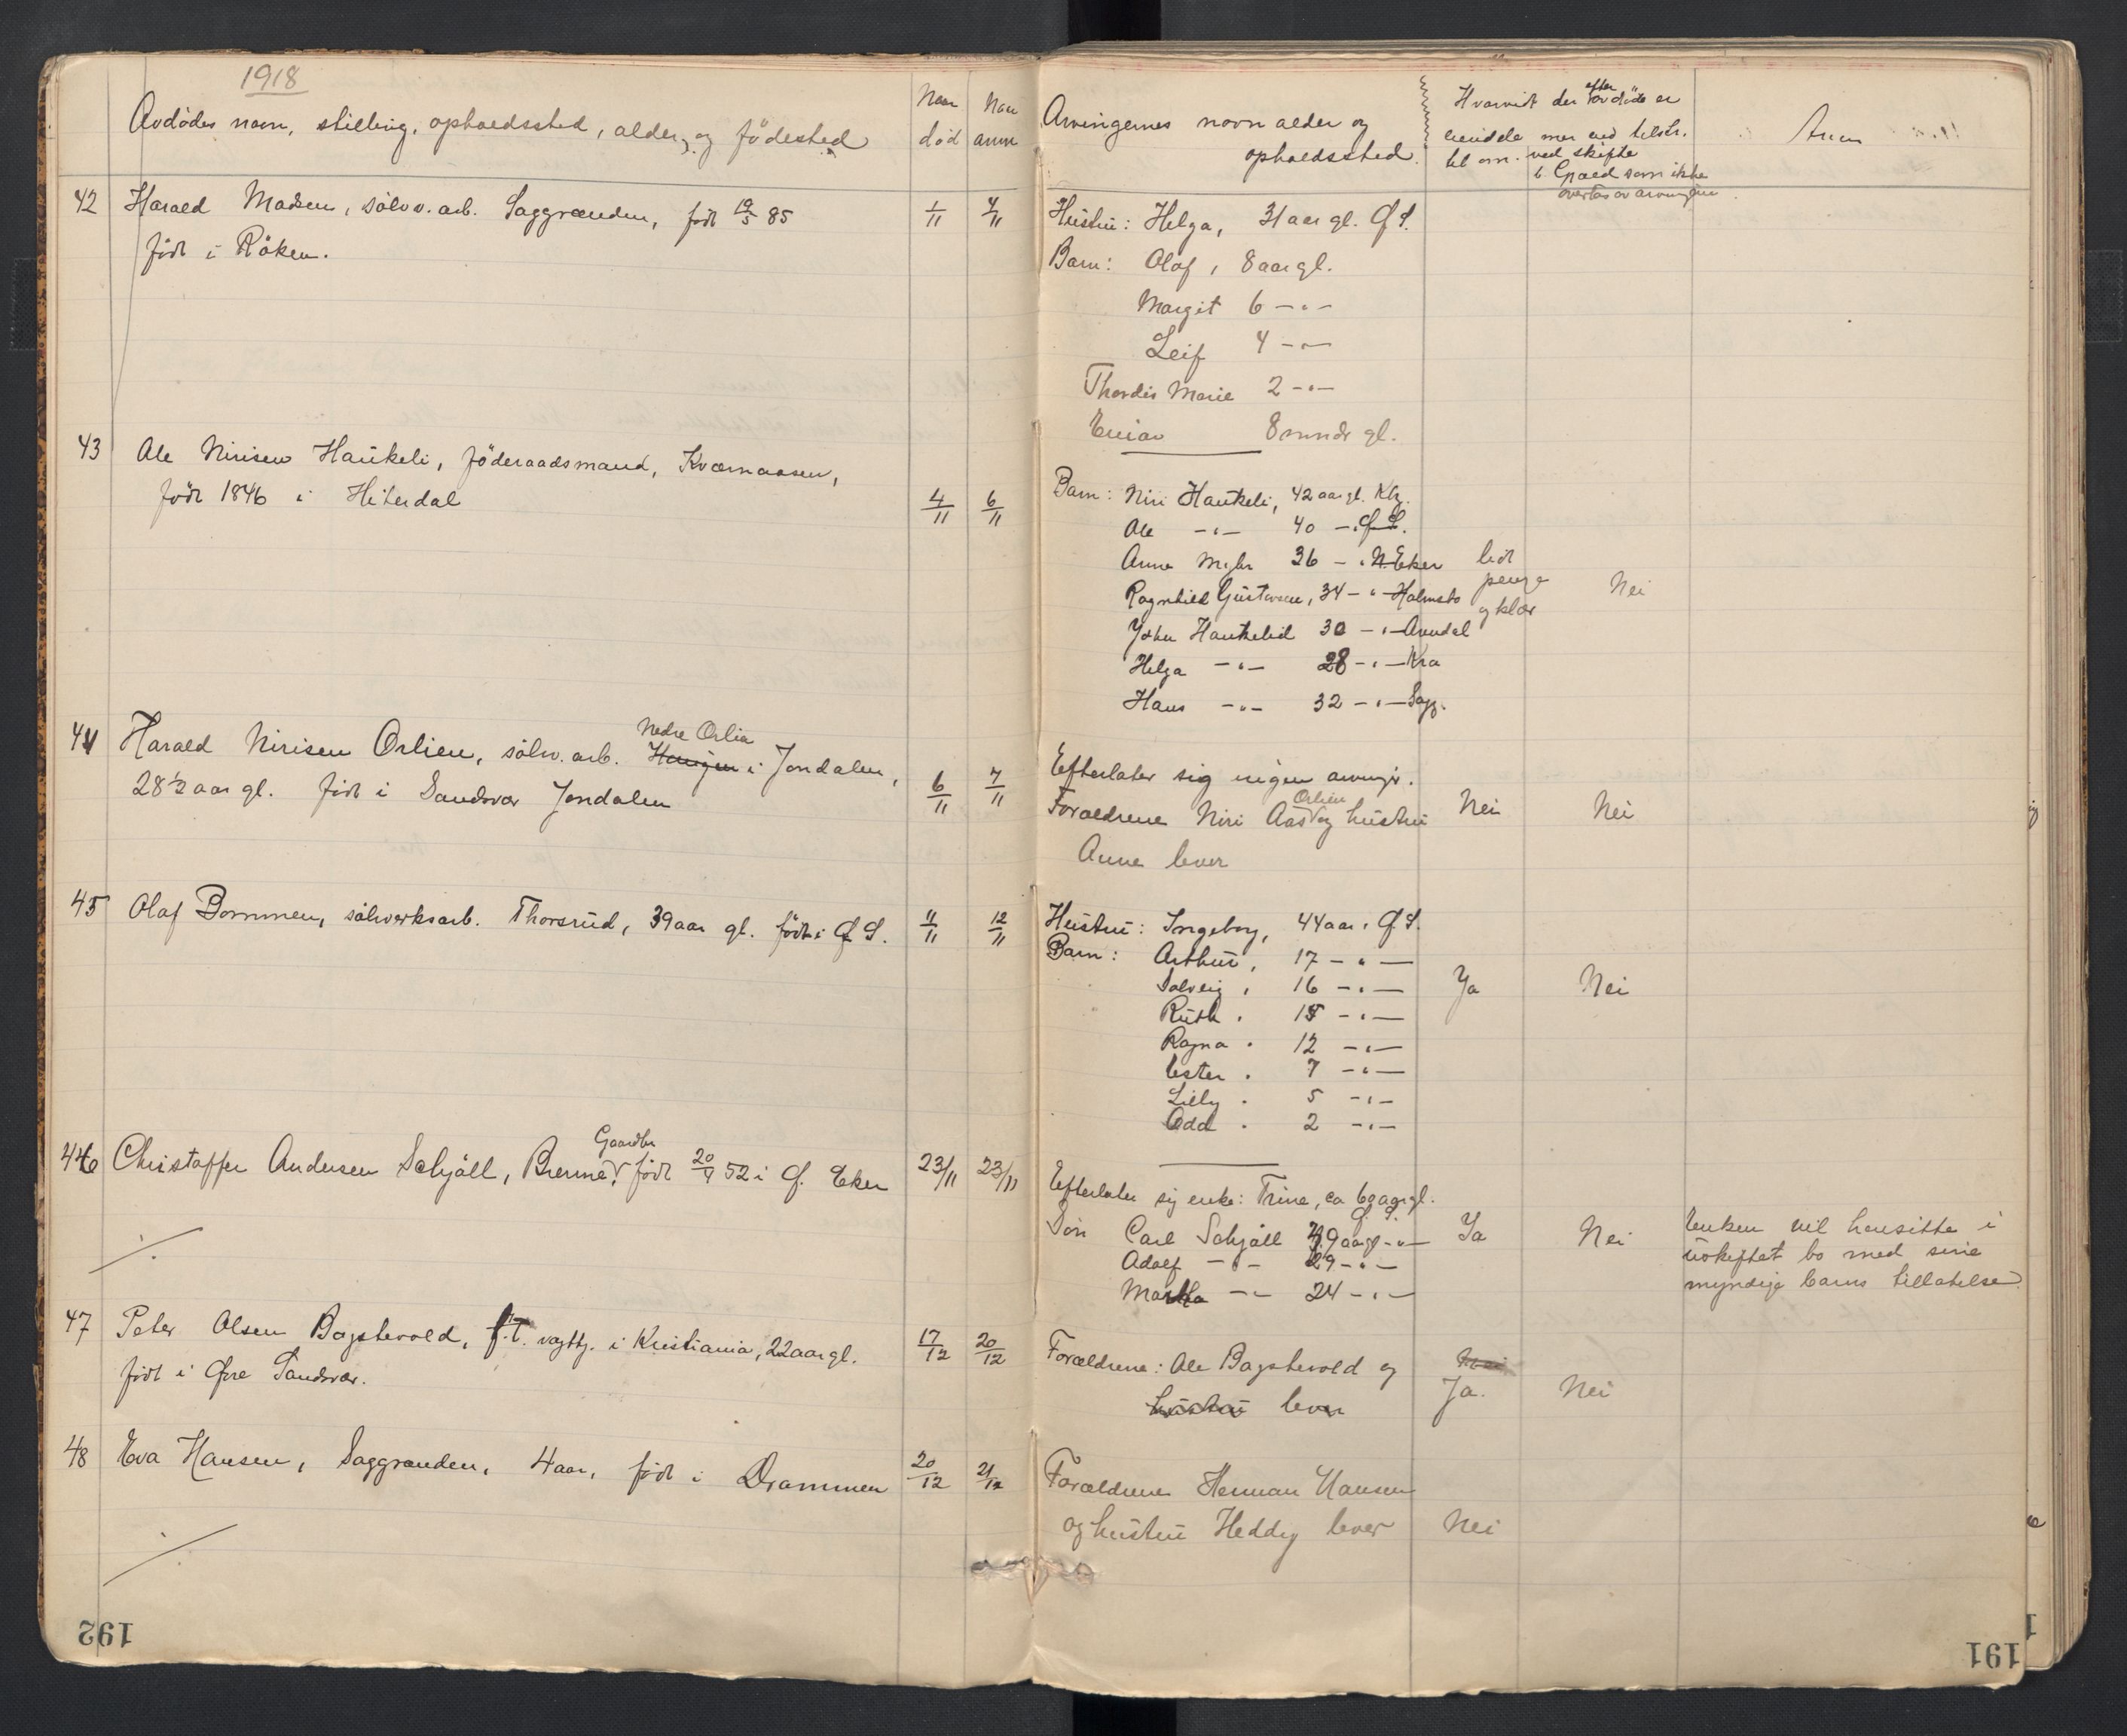 1918
Avdödes navn, stilling, opholdssted, alder, og födested
Naar död
Naar anm
Arvingernes navn alder og
opholdssted.
Hvorvidt der efter avdöde er
ved skifte
som ikke
overtas av arvingene
Anm
42 Harald Madsen, sölvv. arb. Saggrenden, födt 19/5 85 1/11 4/11
födt i Röken.
Hustru: Helga, 31 aar gl. Ø S.
Barn: Olaf, 8 aar gl.
Margit 6 -"-
Leif 4 -"-
Thordis Marie 2 -"-
Einar 8 mndr gl.
43 Ole Nirisen Haukeli, föderaadsmand, Kværnaasen,
födt 1846 i Hiterdal 4/11 6/11
Barn: Niri Haukeli, 42 aar gl. Kbg.
Ole -"- 40 -"- Ø S.
Anna Myhr 36 -"- N. Eker
Ragnhild Gustavsen, 34 -"- Holmsbo
John Haukelid 30 -"- Arendal
Helga -"- 28 -"- Kra
Hans -"- 32 -"- Sagg.
lidt
penge
og klær
Nei
44 Harald Nirisen Orlien, sölvv. arb. Haugen i Jondalen,
Nedre Orlia
28 1/2 aar gl. födt i Sandsvær Jondalen 6/11 7/11
Efterlater sig ingen arvinger.
Forældrene Niri Aas og hustru
Orlien
Anne lever
Nei Nei
45 Olaf Bommen, sölvverksarb. Thorsrud, 39 aar gl. födt i Ø S. 11/11 12/11
Hustru: Ingeborg, 44 aar. Ø S.
Barn: Arthur, 17 -"-
Solveig, 16 -"-
Ruth. 15 -"-
Ragna. 12 -"-
Ester. 7 -"-
Lilly. 5 -"-
Odd. 2 -"-
Ja Nei
46 Christoffer Andersen Schjöll, födt 20/9 52 i Ø. Eker 23/11 23/11
Gaardbr
Efterlater sig enke: Trine, ca 60 aar gl.
Ø. S.
Sön Carl Schjöll 39 aar gl -"-
Adolf -"- 29 -"-
Martha -"- 24 -"-
Ja Nei
Enken vil hensitte i
uskiftet bo med sine
myndige barns tillatelse
47 Peter Olsen Bagstevold, f.t. vagttj. i Kristiania, 22 aar gl. 17/12 20/12
födt i Øvre Sandsvær.
Forældrene: Ole Bagstevold og
hustru lever
Nei
Ja. Nei
48 Eva Hansen, Saggrenden, 4 aar, födt i Drammen 20/12 21/12
Forældrene Herman Hansen
og hustru Heddy lever Nei
192
191